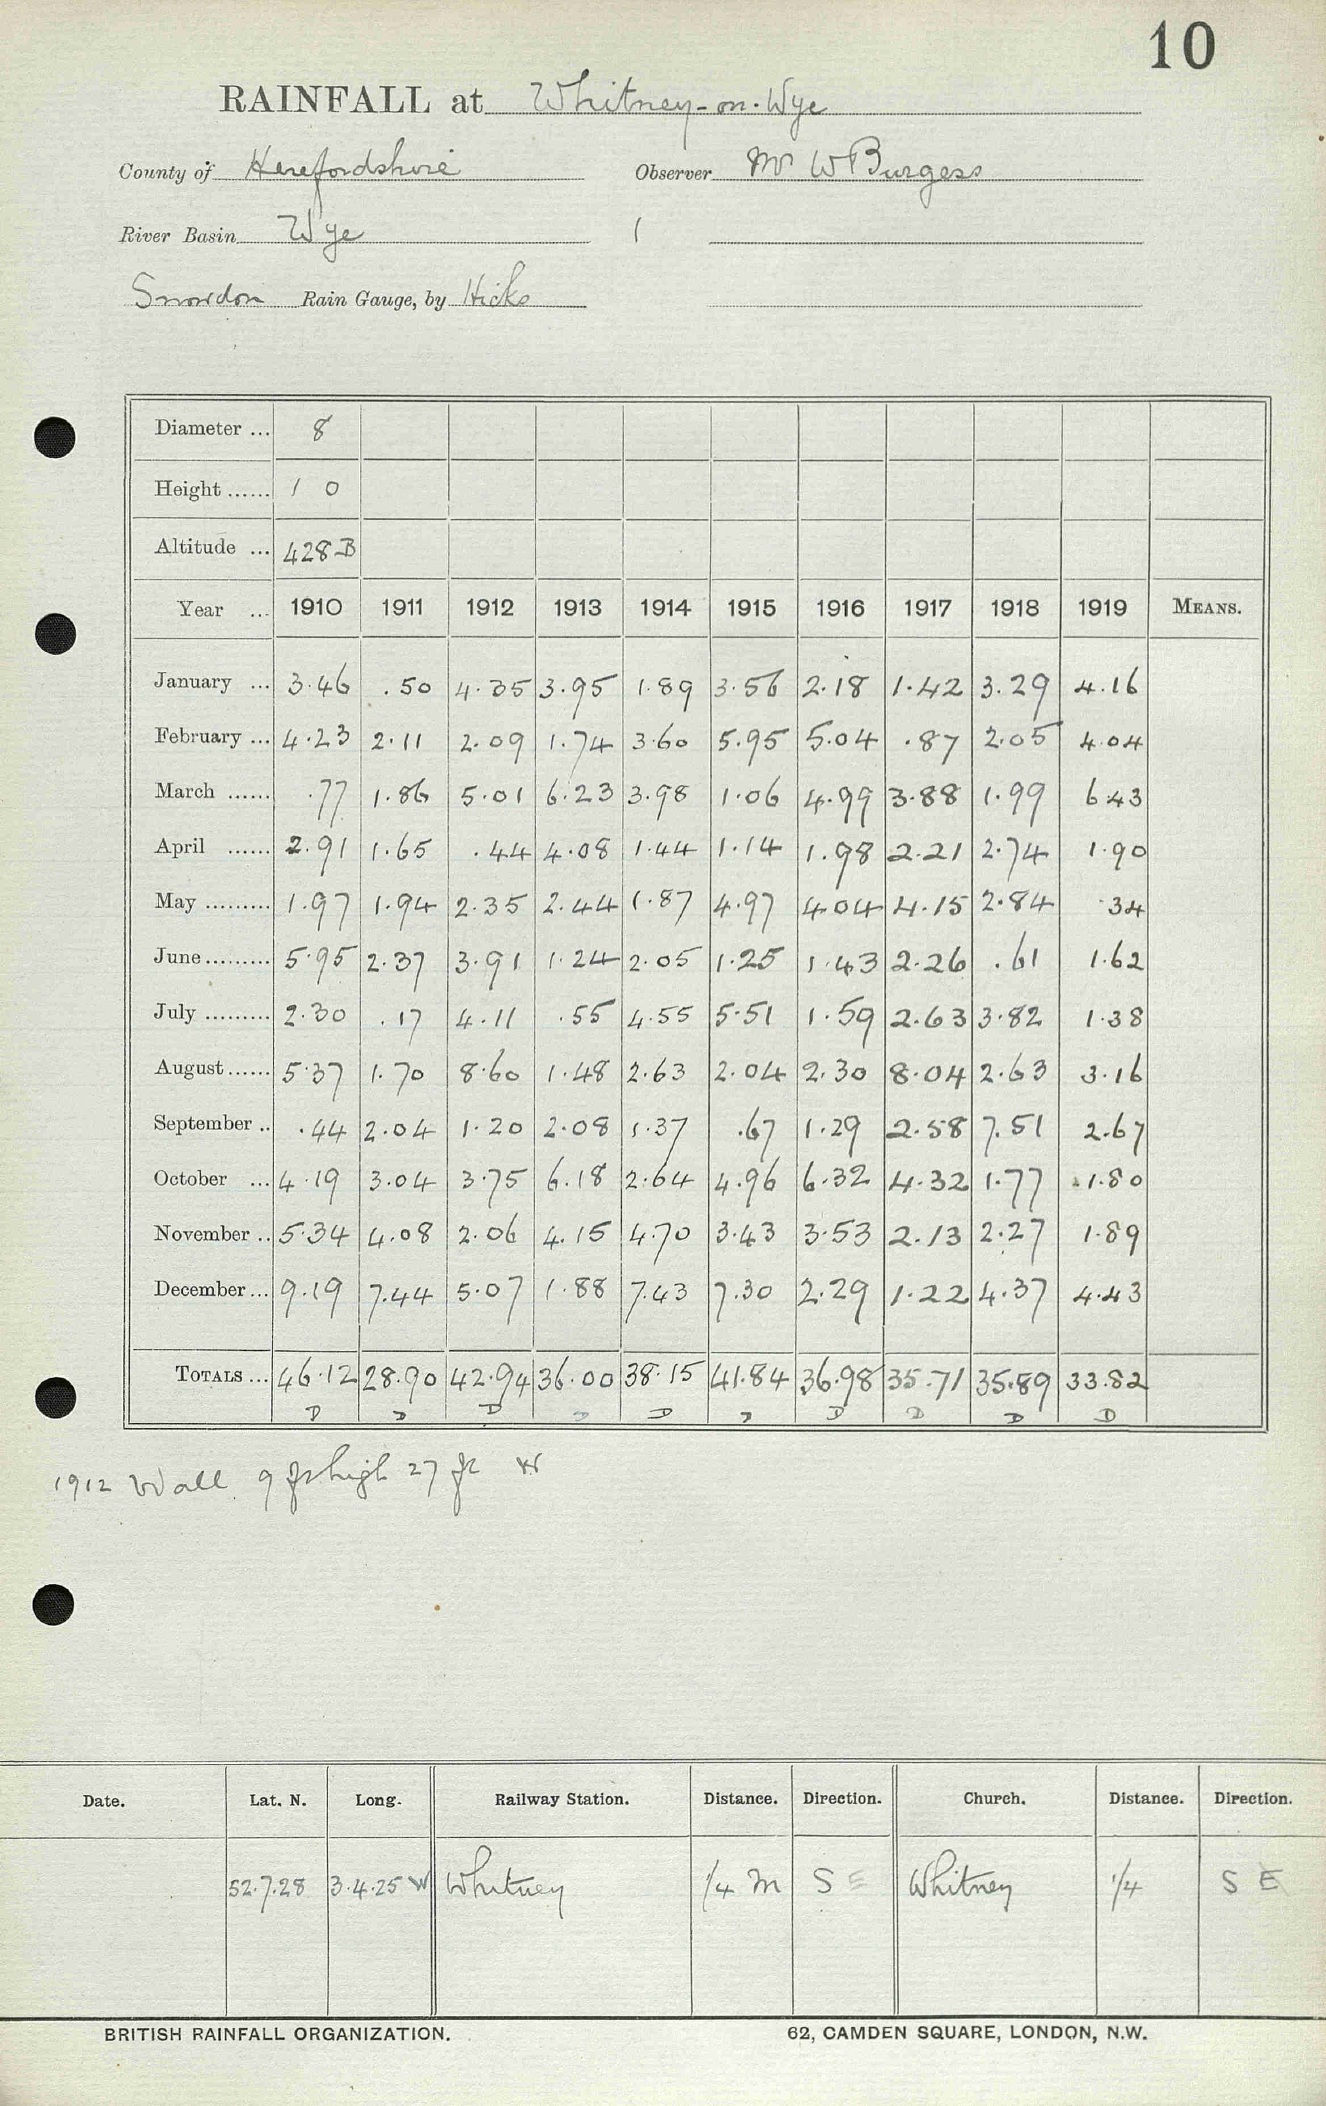 10
RAINFALL at Whitney-on-Wye
County of Herefordshire Observer Mr W Burgess
River Basin Wye 1
Snowdon Rain Gauge, by Hicks
Diameter ... 8
Height ...... 1 0
Altitude ... 428 B
Year ... 1910 1911 1912 1913 1914 1915 1916 1917 1918 1919 MEANS.
January ... 3.46 .50 4.35 3.95 1.89 3.56 2.18 1.42 3.29 4.16
February ... 4.23 2.11 2.09 1.74 3.60 5.95 5.04 .87 2.05 4.04
March ...... .77 1.86 5.01 6.23 3.98 1.06 4.99 3.88 1.99 6.43
April ...... 2.91 1.65 .44 4.08 1.44 1.14 1.98 2.21 2.74 1.90
May ......... 1.97 1.94 2.35 2.44 1.87 4.97 4.04 4.15 2.84 .34
June ......... 5.95 2.37 3.91 1.24 2.05 1.25 1.43 2.26 .61 1.62
July ......... 2.30 .17 4.11 .55 4.55 5.51 1.59 2.63 3.82 1.38
August ...... 5.37 1.70 8.60 1.48 2.63 2.04 2.30 8.04 2.63 3.16
September .. .44 2.04 1.20 2.08 1.37 .67 1.29 2.58 7.51 2.67
October ... 4.19 3.04 3.75 6.18 2.64 4.96 6.32 4.32 1.77 1.80
November .. 5.34 4.08 2.06 4.15 4.70 3.43 3.53 2.13 2.27 1.89
December ... 9.19 7.44 5.07 1.88 7.43 7.30 2.29 1.22 4.37 4.43
TOTALS ... 46.12 28.90 42.94 36.00 38.15 41.84 36.98 35.71 35.89 33.82
D D D D D D D D D D
1912 Wall 9 ft high 27 ft W
Date. Lat. N. Long. Railway Station. Distance. Direction. Church. Distance. Direction.
52.7.28 3.4.25 W Whitney 1/4 m S E Whitney 1/4 S E
BRITISH RAINFALL ORGANIZATION. 62, CAMDEN SQUARE, LONDON, N.W.